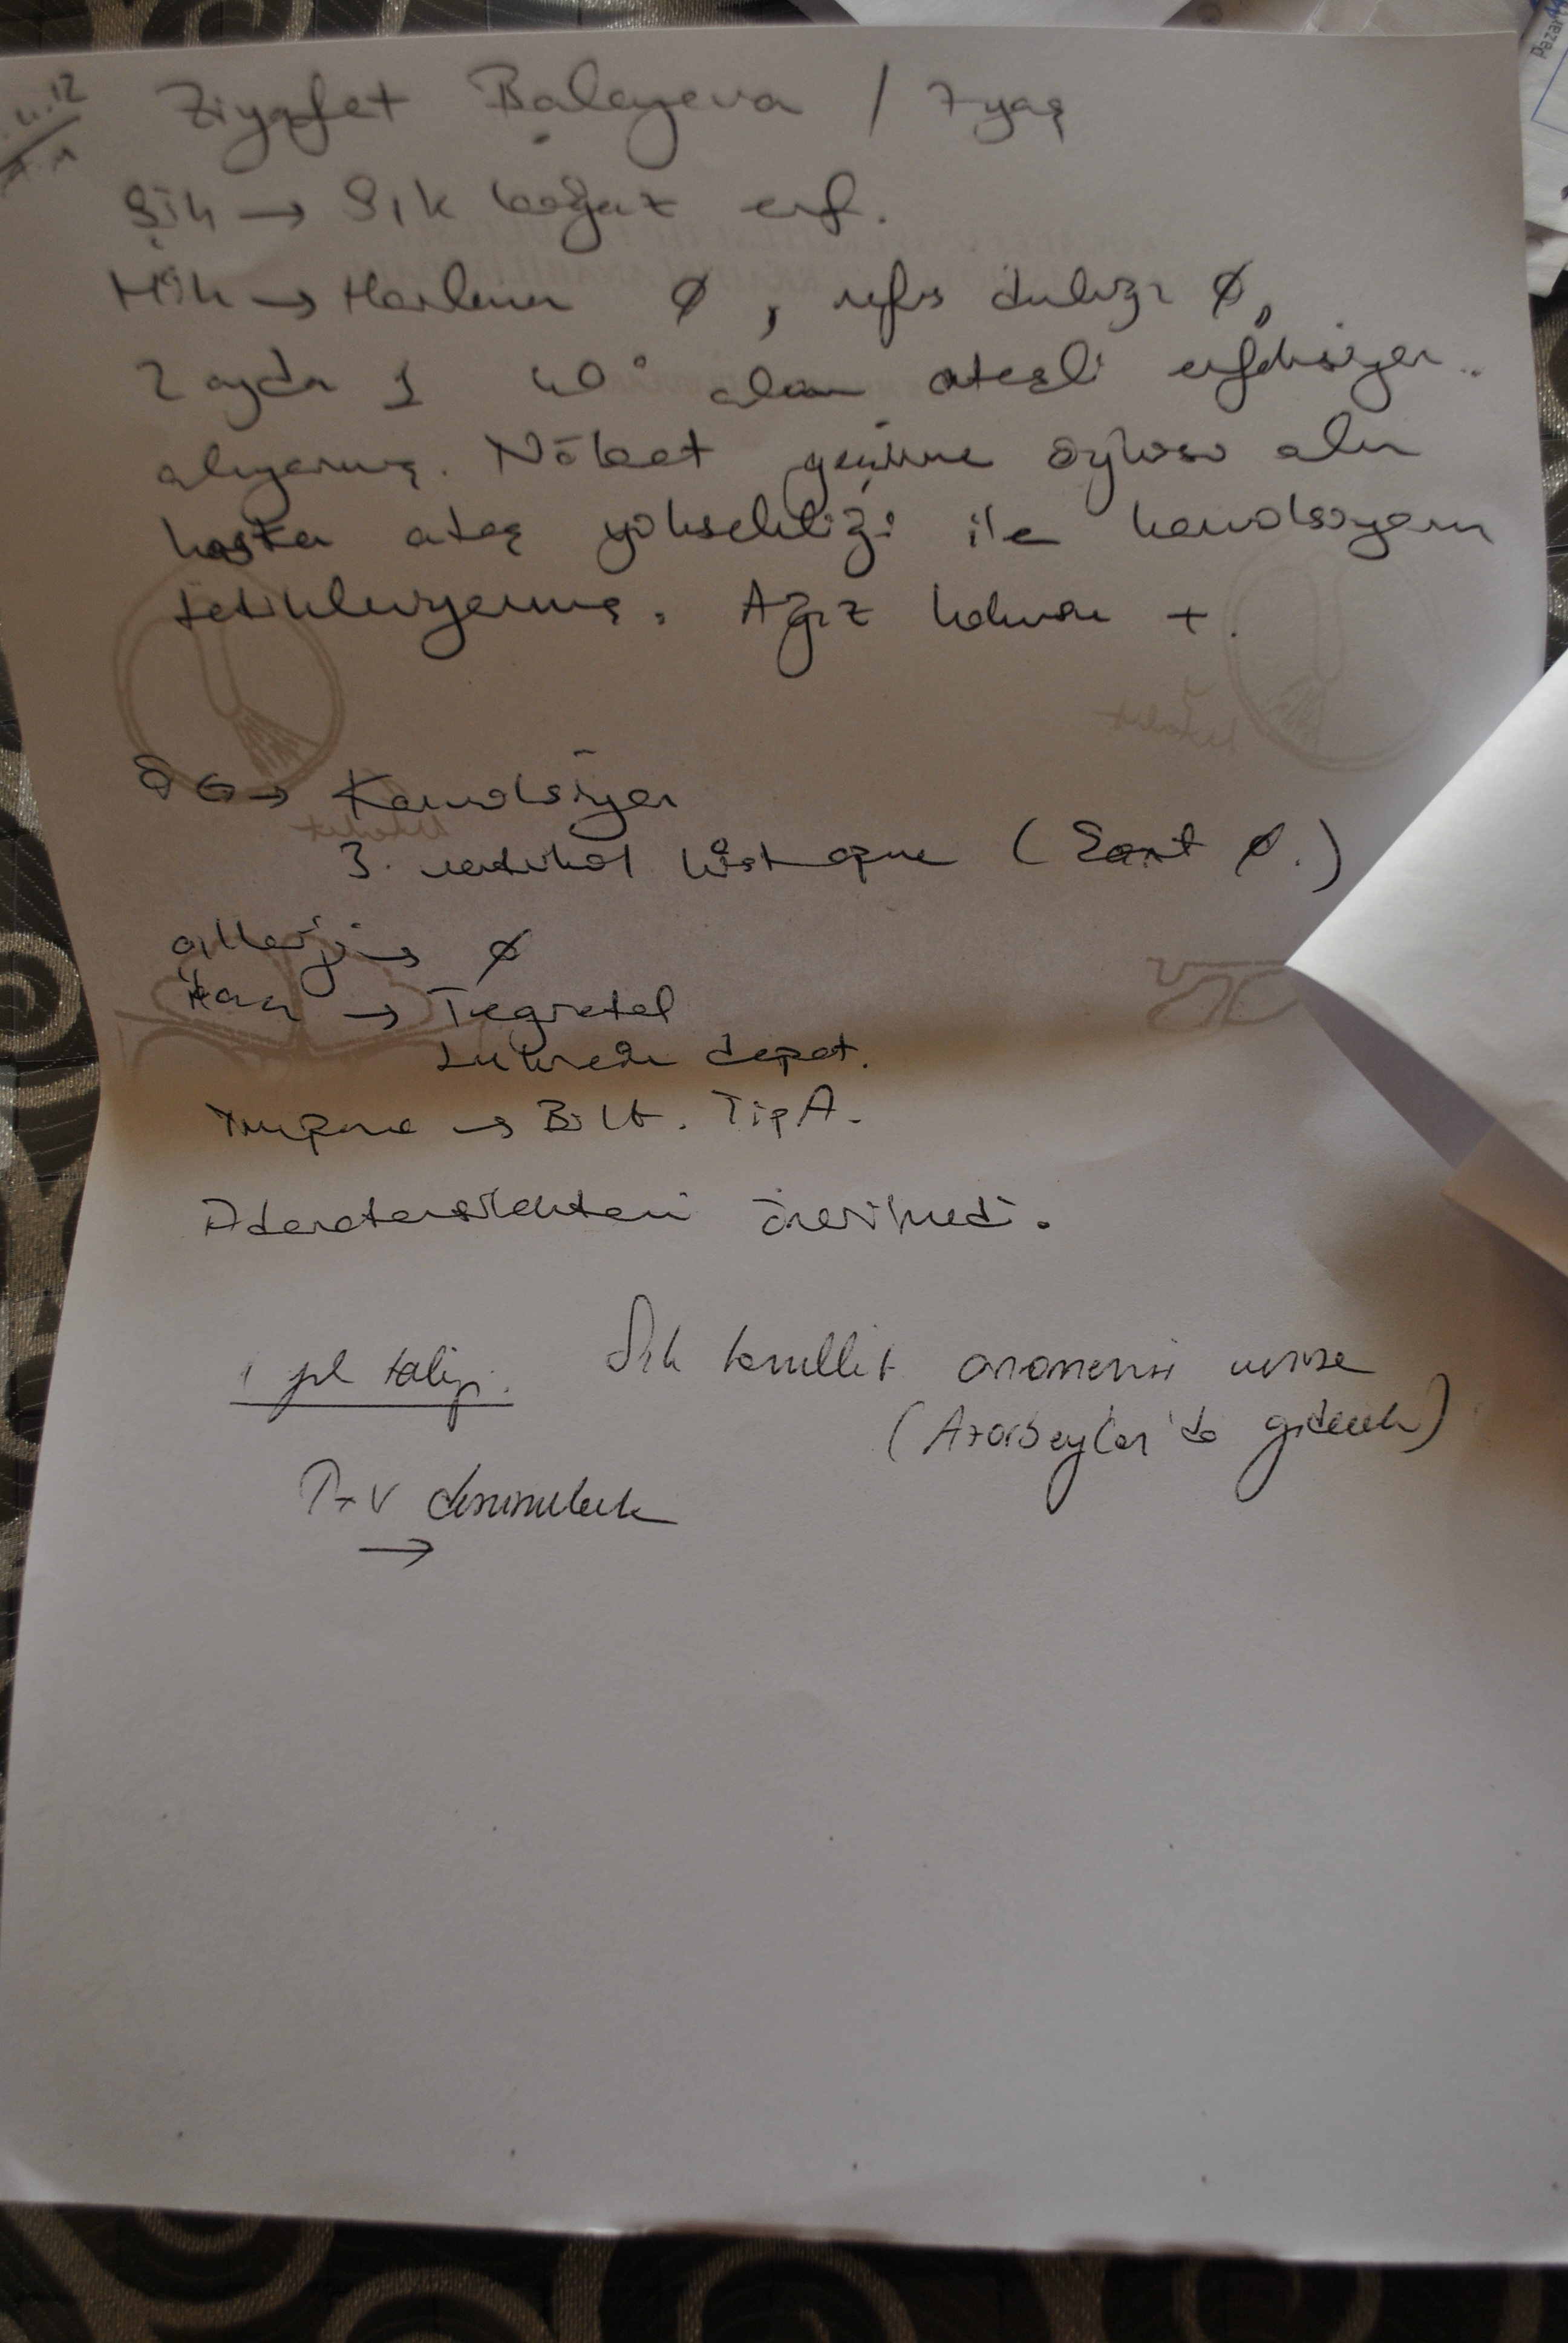 Ziyafet Balayeva / 7 yaş
Şik → Sık boğaz enf.
Hik → Horlama Ø, nefes darlığı Ø,
2 ayda 1 40° olan ateşli enfeksiyon
alıyormuş. Nöbet geçirme öyküsü olan
hasta ateş yüksekliği ile konvülsiyonu
tetikleniyormuş. Ağız kokusu +.
ÖG → Konvülsiyon
3. ventrikül kist opne (Şant Ø.)
allerji → Ø
İlaç → Tegretol
Lucrin depot.
Timpano → Bilt. Tip A.
Adenotonsillektomi önerilmedi.
1 yıl takip. Sık tonsillit anamnezi verirse
(Azarbeycan'da gidecek)